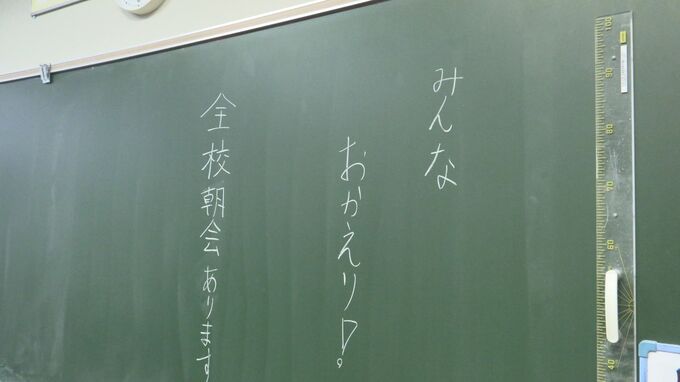 みんな
おかえり!。
全校朝会あります
100
90
80
70
60
50
40